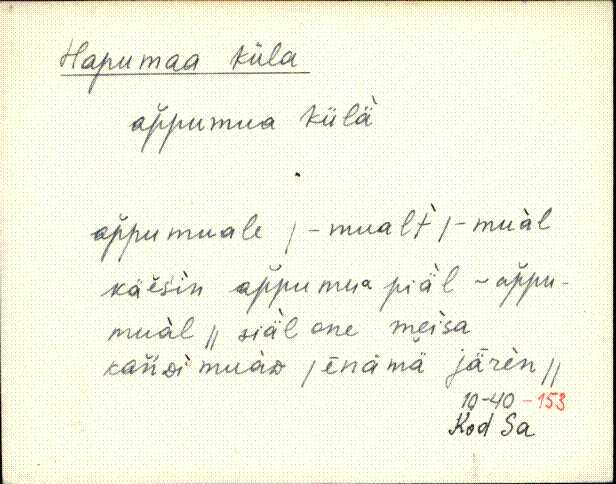 Hapumaa küla
ap̆pumua külä̀
ap̆pumuale, -mualt̀, -muàl
käěsìn ap̆pumua piäl ~ap̆pu-
muàl // siäl one meìsa
kan̆dìmuàD, ēnämä järèn //
10-40-153
Kod Sa